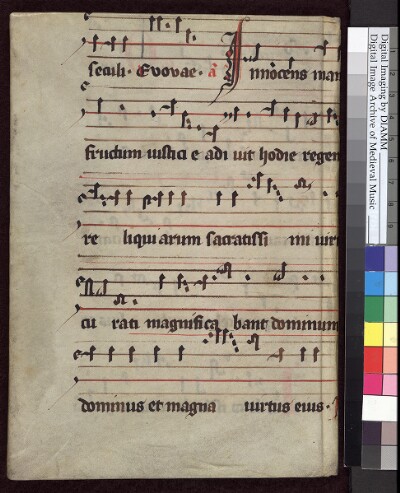 seculi · Evovae · a Innocens man
fructum iusticie adiuit hodie regen
reliquiarum sacratissimi viri
curati magnificabant dominum
dominus et magna virtus eius ·
Digital Imaging by DIAMM
Digital Image Archive of Medieval Music